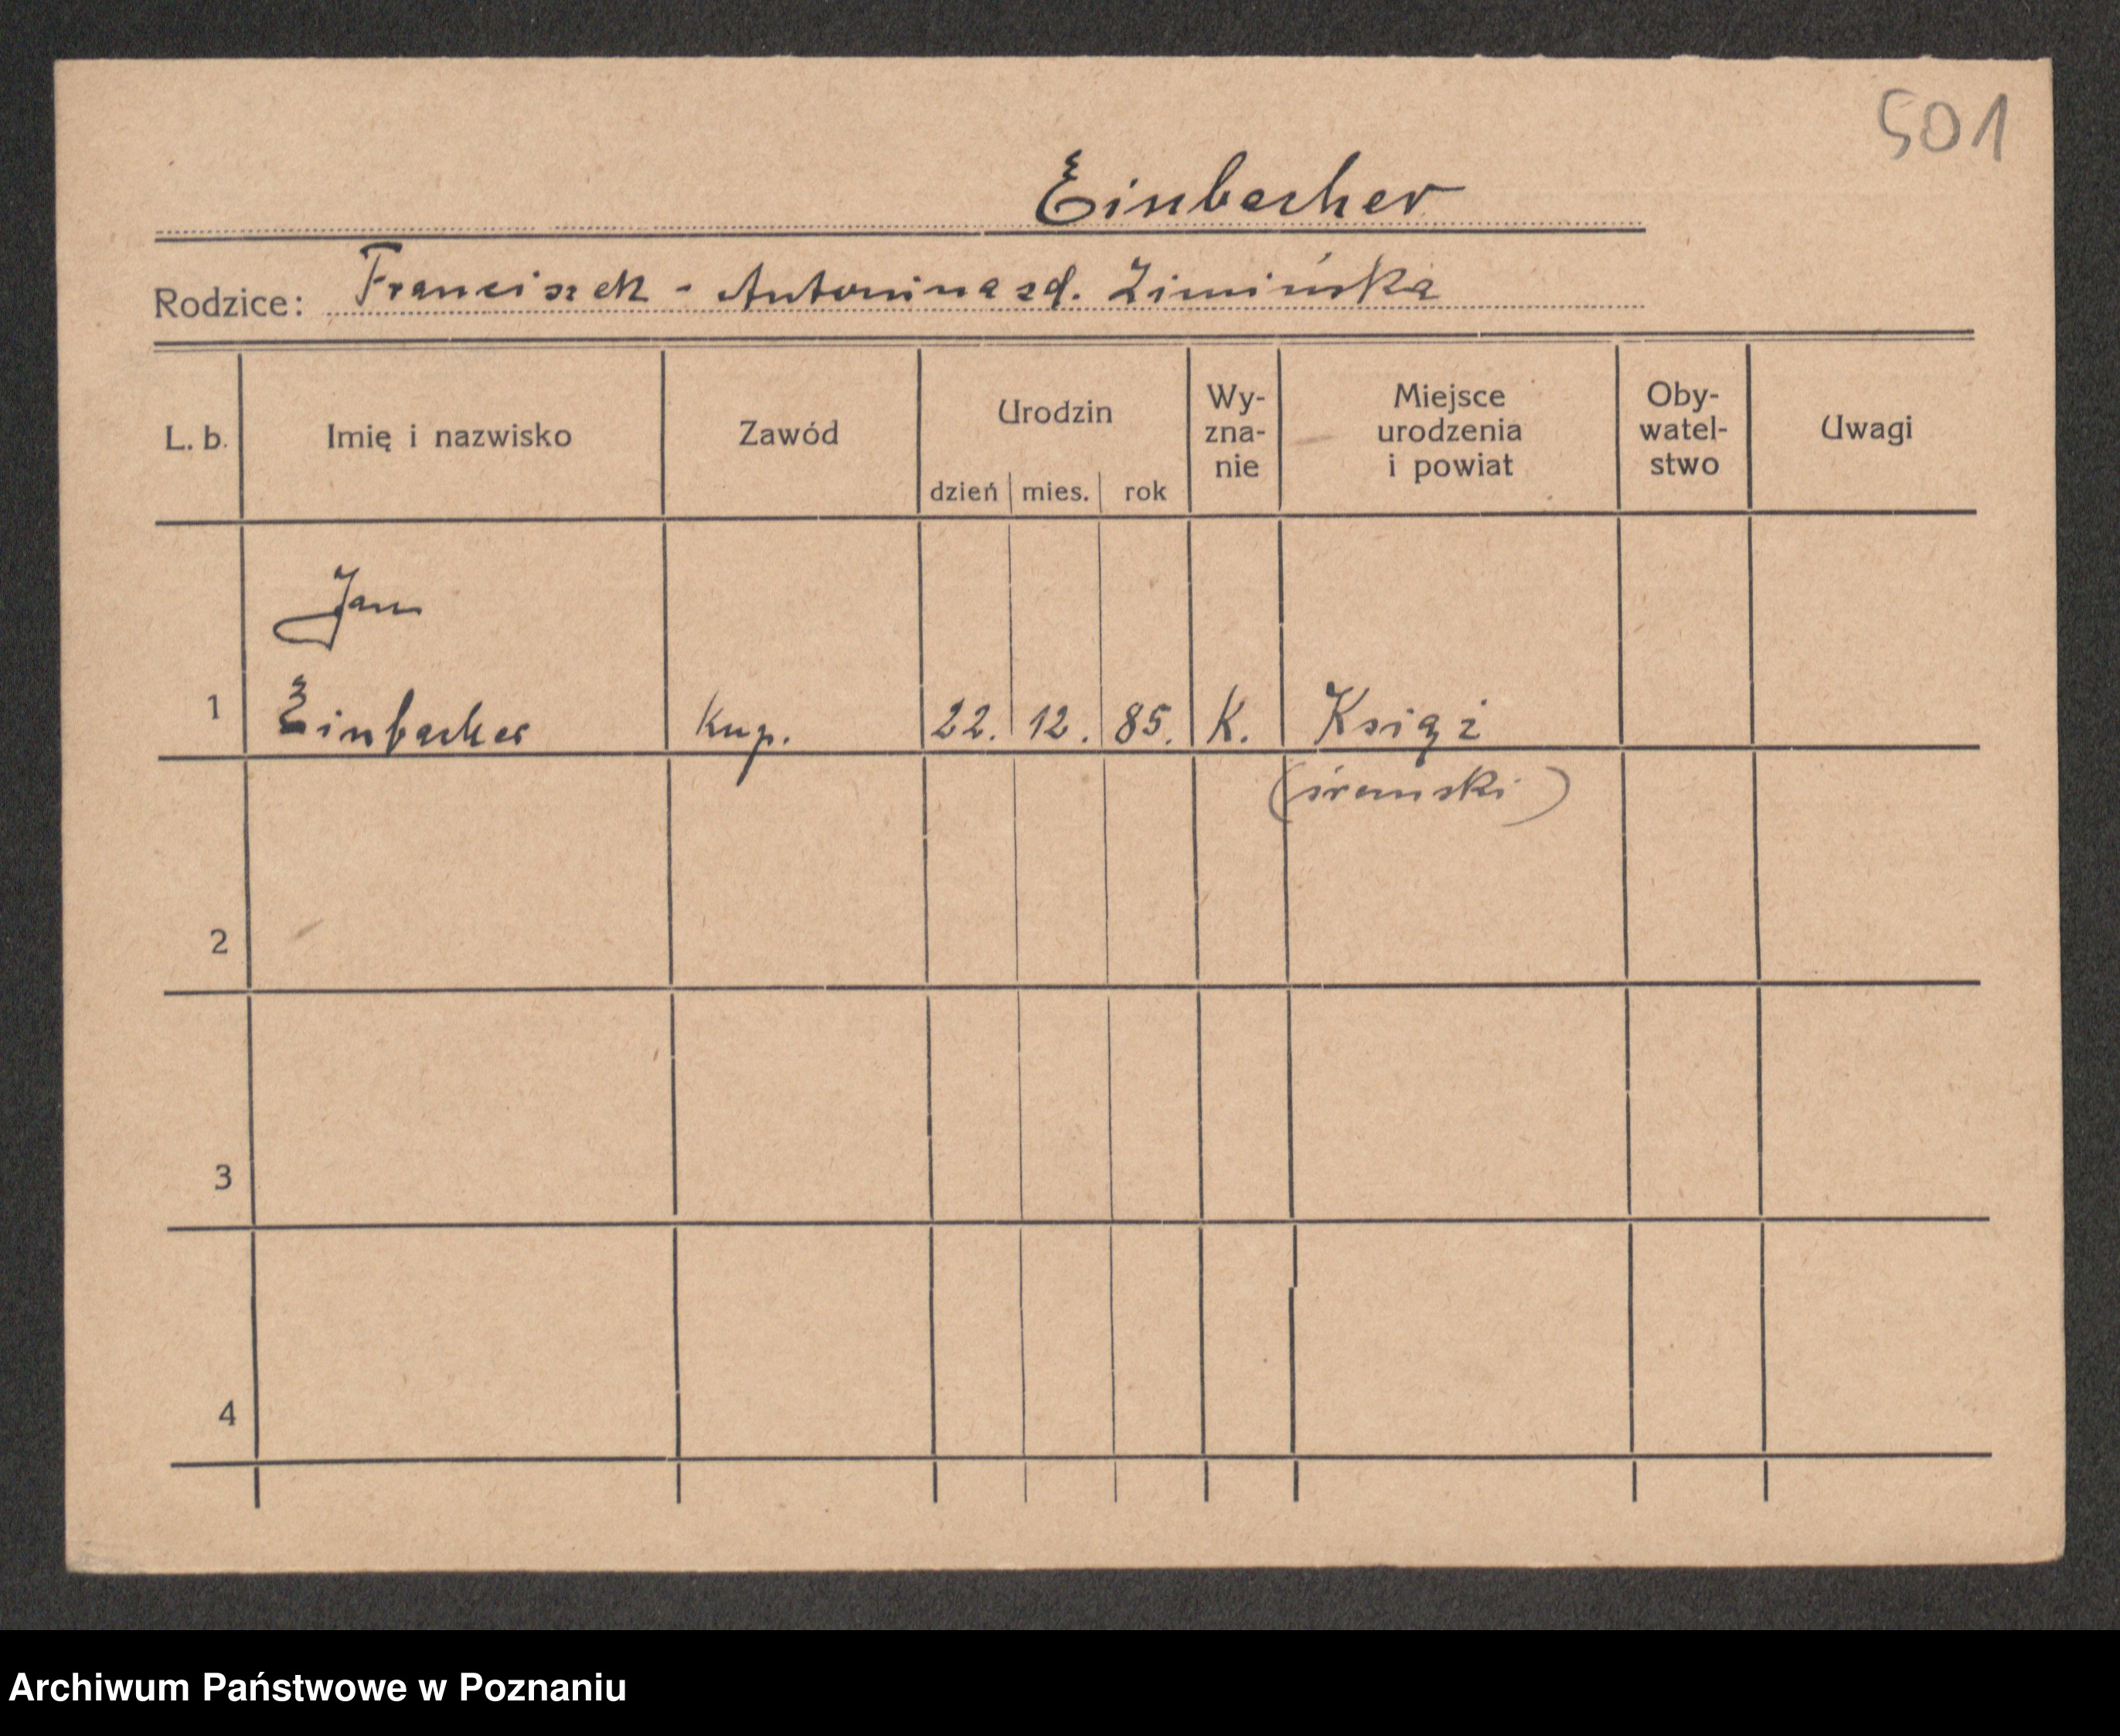 501
Einbacher
Rodzice: Franciszek - Antonina zd. Zimińska
L. b.
Imię i nazwisko
Zawód
Urodzin
dzień mies. rok
Wy-
zna-
nie
Miejsce
urodzenia
i powiat
Oby-
watel-
stwo
Uwagi
Jan
1 Einbacher Kup. 22. 12. 85. K. Książ
(śremski)
2
3
4
Archiwum Państwowe w Poznaniu